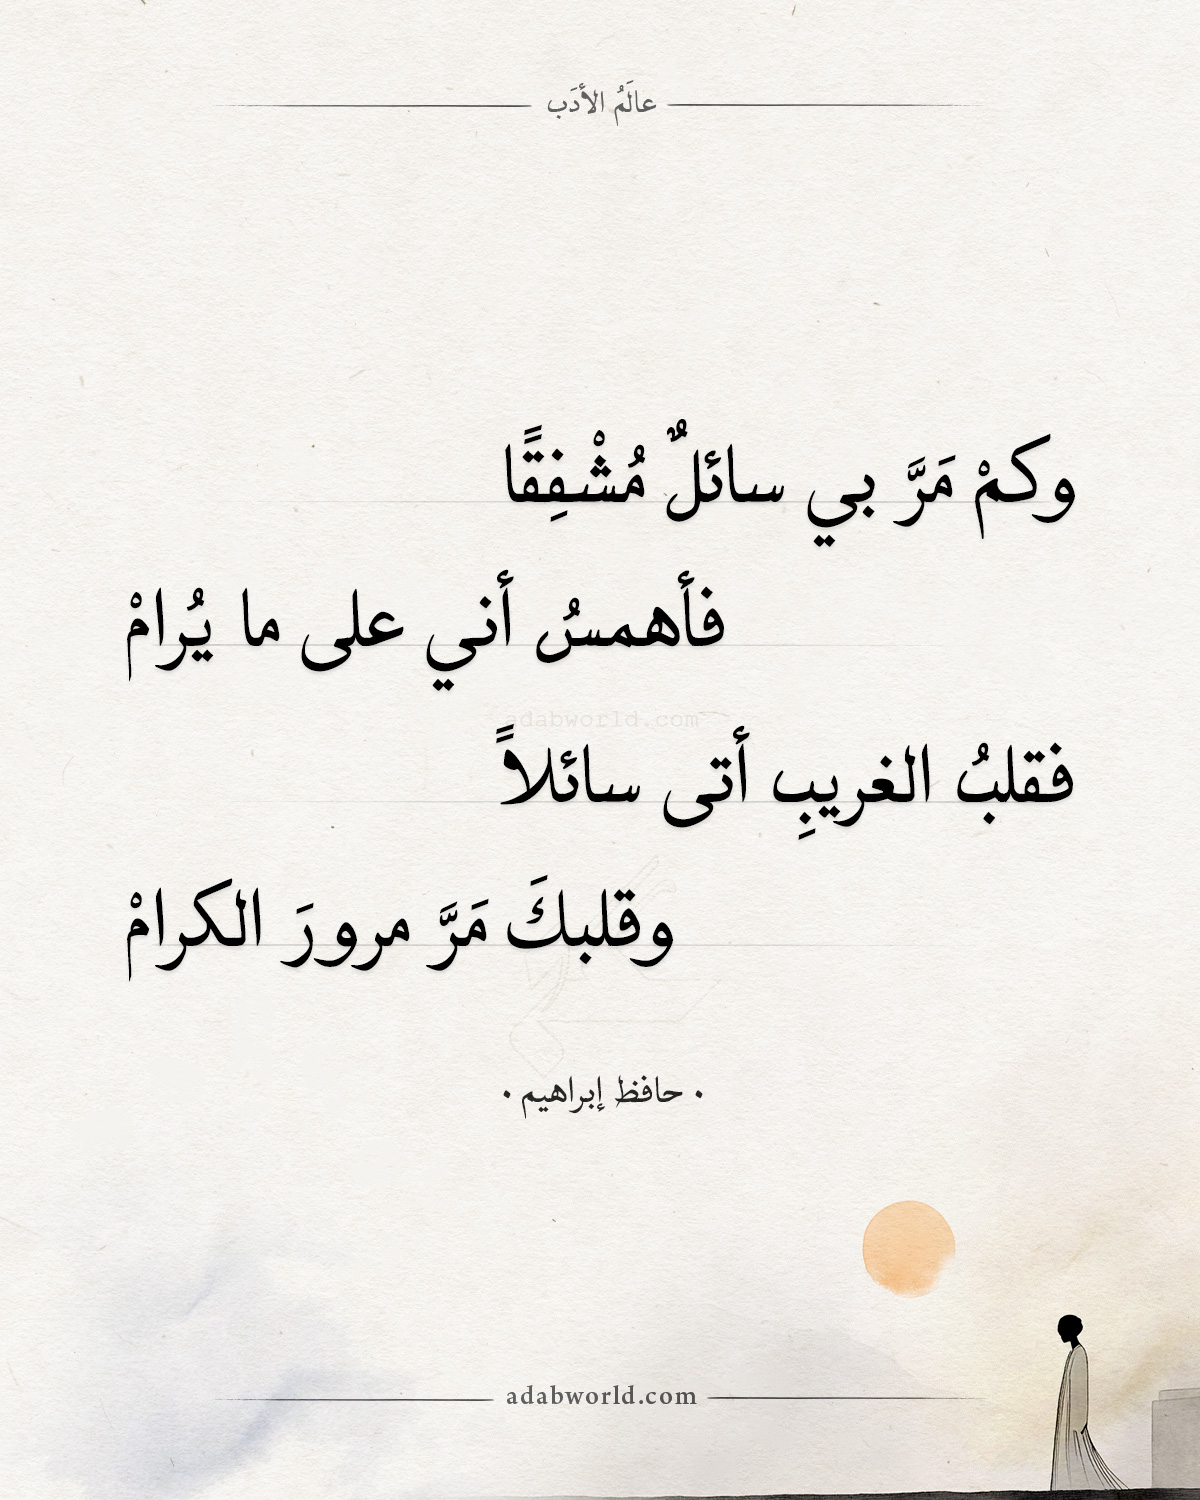 عالَمُ الأدَب
وكمْ مَرَّ بي سائلٌ مُشْفِقًا
فأهمسُ أني على ما يُرامْ
adabworld.com
فقلبُ الغريبِ أتى سائلاً
وقلبكَ مَرَّ مرورَ الكرامْ
• حافظ إبراهيم •
adabworld.com